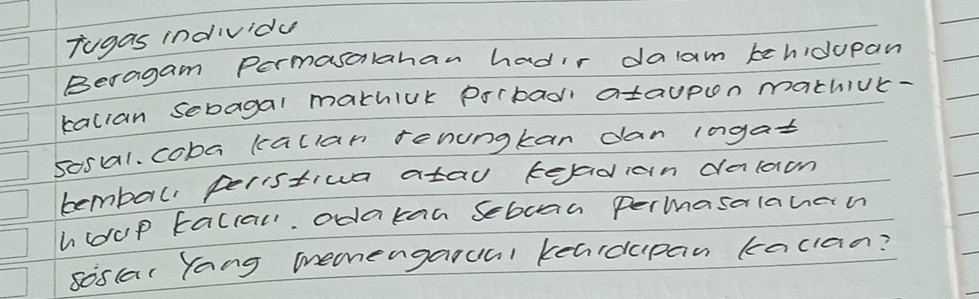 Tugas individu
Beragam Permasalahan hadir dalam kehidupan
kalian sebagai makhluk Pribadi ataupun makhluk-
sosial. coba kalian renungkan dan ingat
kembali peristiwa atau kejadian dalam
hidup kalian. adakah sebuah permasalahan
sosial Yang memengaruhi kehidupan kalian?